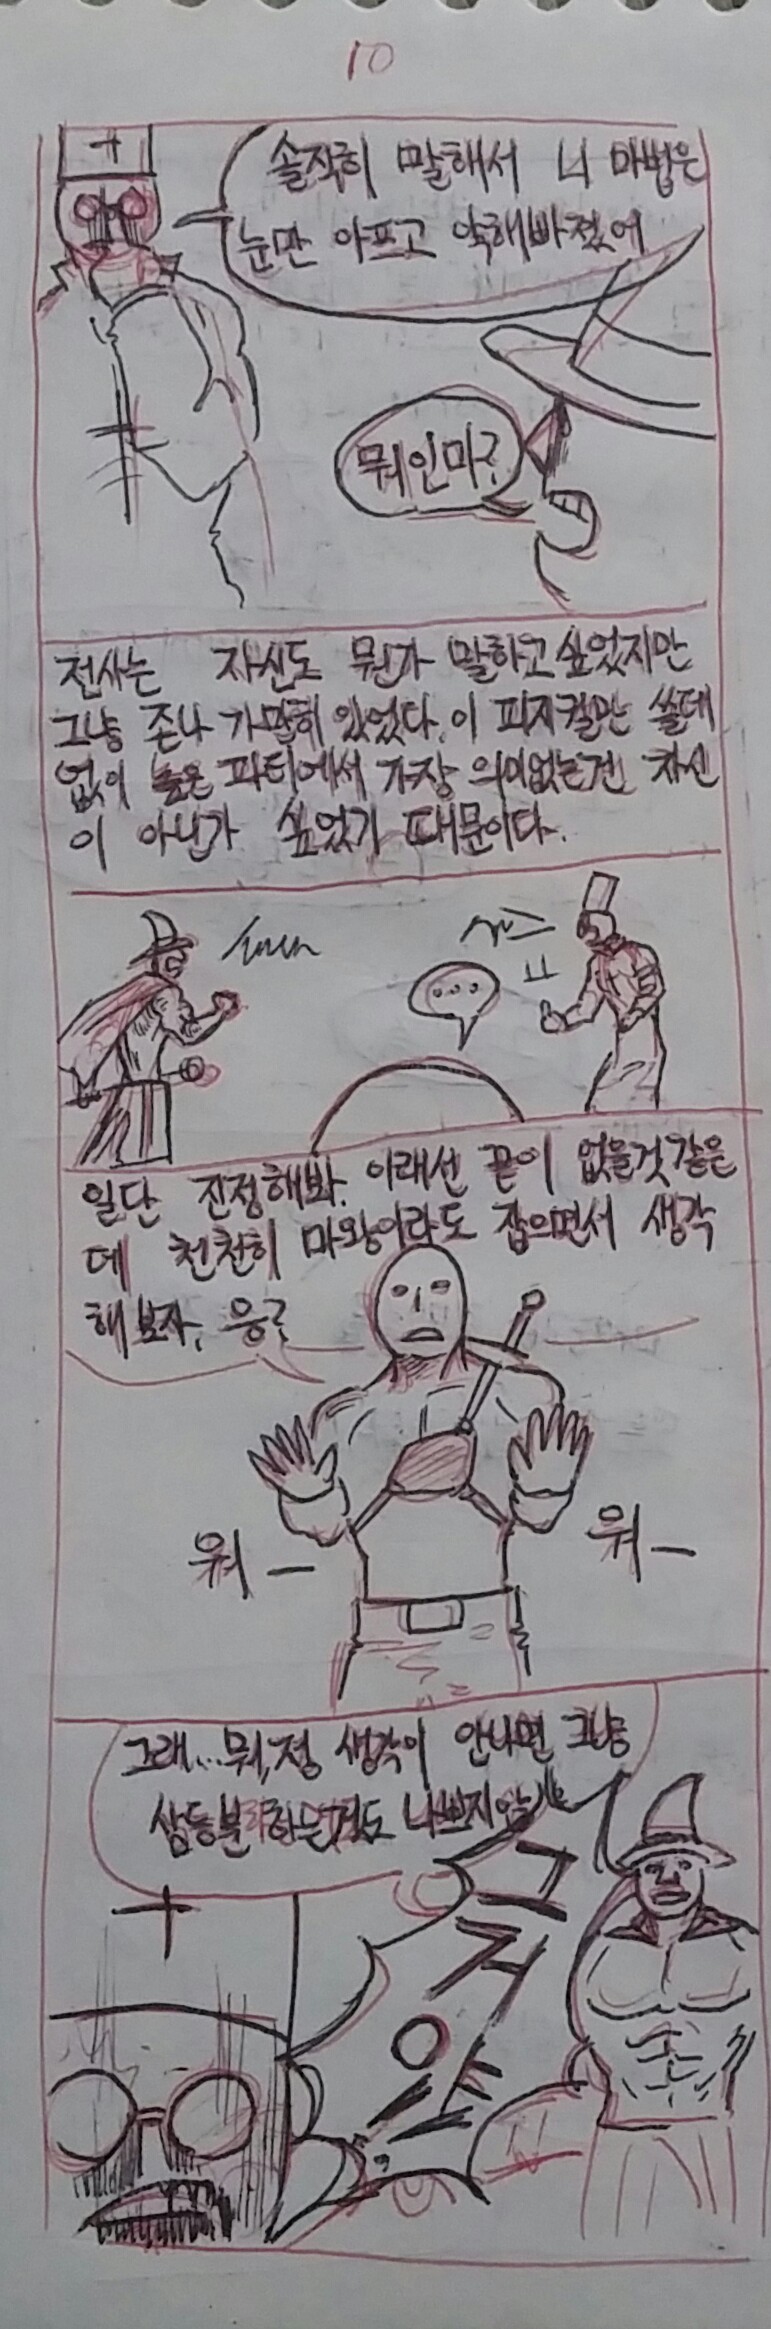 10
솔직히 말해서 니 마법은
눈만 아프고 약해빠졌어
뭐인마?
전사는 자신도 뭔가 말하고 싶었지만
그냥 존나 가만히 있었다. 이 피지컬만 쓸데
없이 높은 파티에서 가장 의미없는건 자신
이 아닌가 싶었기 때문이다.
...
일단 진정해봐. 이래선 끝이 없을것 같은
데 천천히 마왕이라도 잡으면서 생각
해보자, 응?
워-
워-
그래... 뭐, 정 생각이 안나면 그냥
삼등분하는것도 나쁘지않
그거